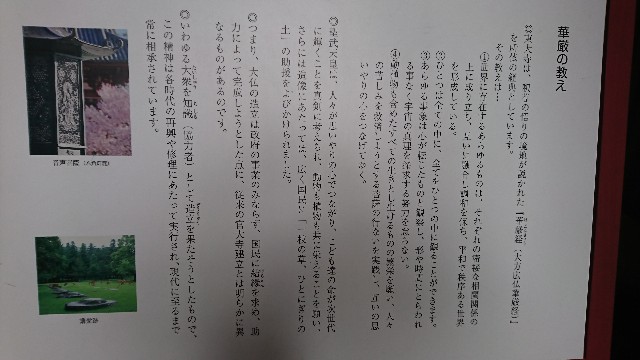 華厳の教え
◎東大寺は、釈尊の悟りの境地が説かれた『華厳経』（大方広仏華厳経）
を所依の経典としています。
その教えは…
①世界に存在するあらゆるものは、それぞれの密接な相関関係の
上に成り立ち、互いに融合し調和を保ち、平和で秩序ある世界
を形成している。
②ひとつは全ての中に、全てをひとつの中に観ることができます。
③あらゆる事象は心が
ものと観察し、形や時にとらわれ
る事なく宇宙の真理を探求する努力を怠らない。
④動植物も含めたすべての生きとし生けるものの繁栄を願い、人々
の苦しみを救済しようとする
を実践し、互いの思
いやりの心をつなげてゆく。
◎聖武天皇は、人々が思いやりの心でつながり、こども達の命が次世代
に継ぐことを真剣に考えられ、動物も植物も共に栄えることを願い、
さらには造像にあたっては、広く国民に「一枝の草、ひとにぎりの
土」の助援をよびかけられました。
◎つまり、大仏の造立は政府の事業のみならず、国民に結縁を求め、助
力によって完成しようとした点に、従来の官大寺建立とは明らかに異
なるものがあるのです。
◎いわゆる大衆を知識（協力者）として造立を果たそうとしたもので、
この精神は各時代の再興や修理にあたって実行され、現代に至るまで
常に相承されています。